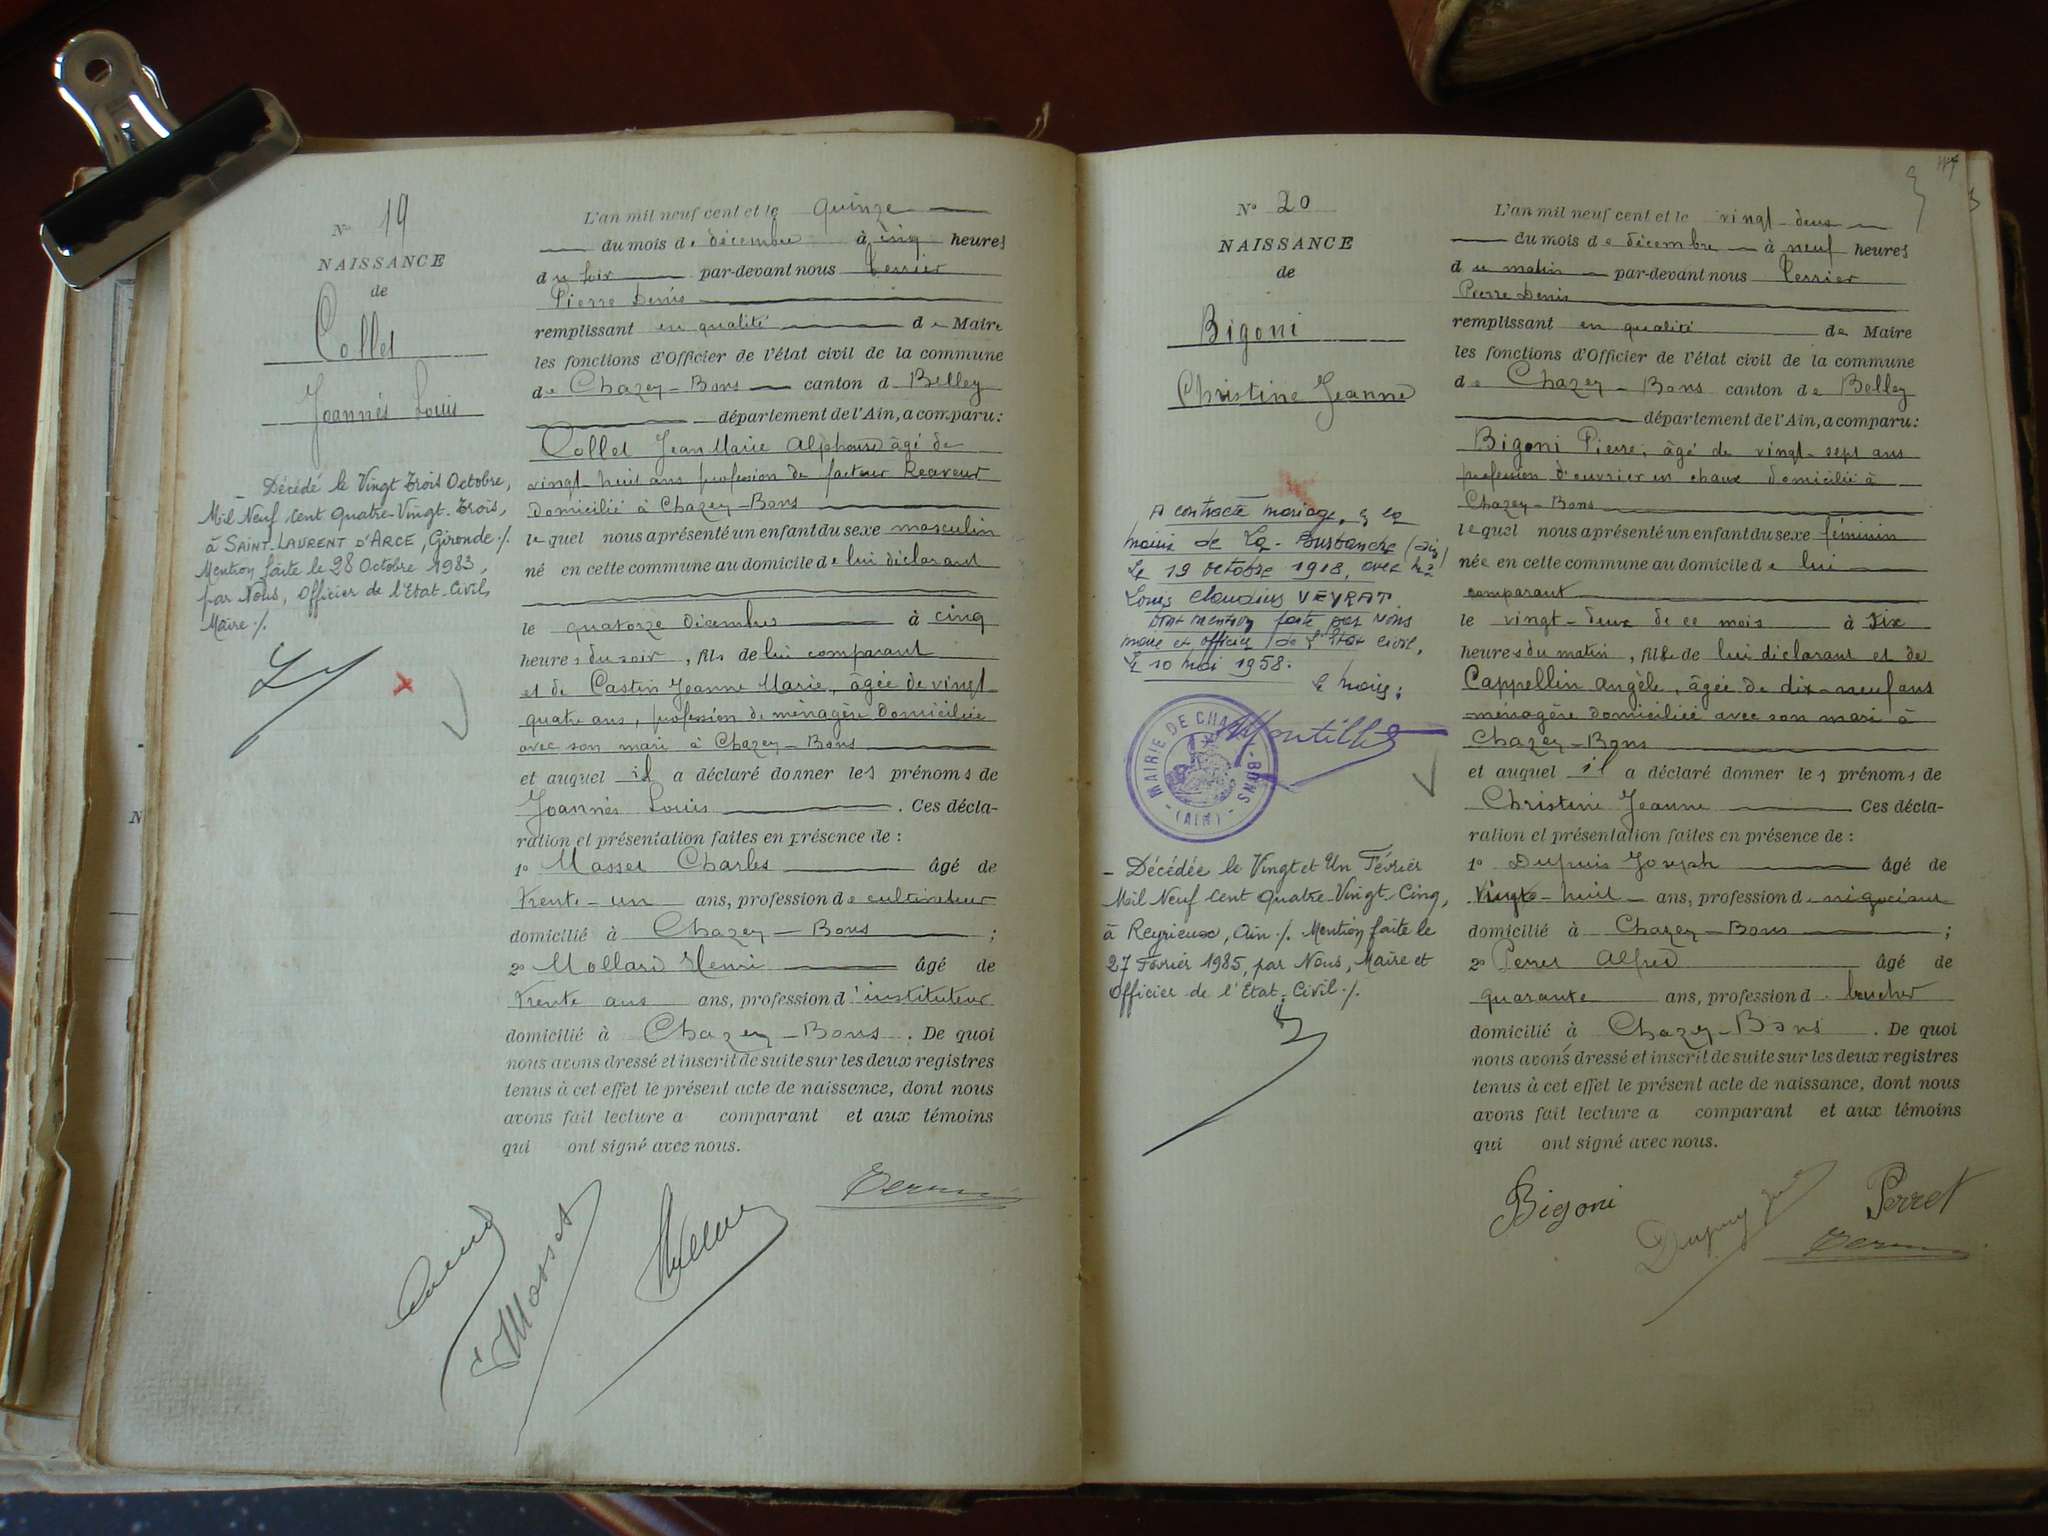 N° 19
NAISSANCE
de
Collet
Joannès Louis
Décédé le Vingt Trois Octobre,
Mil Neuf Cent Quatre-Vingt-Trois,
à SAINT-LAURENT D'ARCE, Gironde ./.
Mention faite le 28 Octobre 1983,
par Nous, Officier de l'Etat-Civil,
Maire ./.
L'an mil neuf cent et le quinze
du mois de décembre à cinq heures
du soir par-devant nous
Pierre Denis
remplissant en qualité de Maire
les fonctions d'Officier de l'état civil de la commune
de Chazey-Bons canton d Belley
département de l'Ain, a comparu :
Collet Jean Marie Alphonse âgé de
vingt huit ans profession de facteur Receveur
domicilié à Chazey-Bons
lequel nous a présenté un enfant du sexe masculin
né en cette commune au domicile de lui déclarant
le quatorze décembre à cinq
heures du soir, fils de lui comparant
et de Castin Jeanne Marie, âgée de vingt
quatre ans, profession de ménagère domiciliée
avec son mari à Chazey-Bons
et auquel il a déclaré donner les prénoms de
Joannès Louis. Ces décla-
ration et présentation faites en présence de :
1° Masset Charles âgé de
trente-un ans, profession de cultivateur
domicilié à Chazey-Bons ;
2° Mollard Henri âgé de
trente ans ans, profession d'instituteur
domicilié à Chazey-Bons. De quoi
nous avons dressé et inscrit de suite sur les deux registres
tenus à cet effet le présent acte de naissance, dont nous
avons fait lecture a comparant et aux témoins
qui ont signé avec nous.
Masset
N° 20
NAISSANCE
de
Bigoni
Christine Jeanne
A contracté mariage, à la
mairie de La-Burbanche (Ain)
le 19 octobre 1918, avec
Louis Claudius VEYRAT
Dont mention faite par Nous
maire et officier de l'Etat Civil,
le 10 mai 1958.
le maire :
MAIRIE DE CHAZEY-BONS
(AIN)
- Décédée le Vingt et Un Février
Mil Neuf Cent Quatre-Vingt-Cinq,
à Reyrieux, Ain ./. Mention faite le
27 Février 1985, par Nous, Maire et
Officier de l'Etat-Civil ./.
L'an mil neuf cent et le vingt-deux
du mois de décembre à neuf heures
du matin par-devant nous
Pierre Denis
remplissant en qualité de Maire
les fonctions d'Officier de l'état civil de la commune
de Chazey-Bons canton de Belley
département de l'Ain, a comparu :
Bigoni Pierre, âgé de vingt-sept ans
profession d'ouvrier en chaux domicilié à
Chazey-Bons
lequel nous a présenté un enfant du sexe féminin
née en cette commune au domicile de lui
comparant
le vingt-deux de ce mois à six
heures du matin, fille de lui déclarant et de
Cappellin Angèle, âgée de dix-neuf ans
ménagère domiciliée avec son mari à
Chazey-Bons
et auquel il a déclaré donner les prénoms de
Christine Jeanne Ces décla-
ration et présentation faites en présence de :
1° Dupuis Joseph âgé de
vingt-huit ans, profession de négociant
domicilié à Chazey-Bons ;
2° Perret Alfred âgé de
quarante ans, profession d. boucher
domicilié à Chazey-Bons. De quoi
nous avons dressé et inscrit de suite sur les deux registres
tenus à cet effet le présent acte de naissance, dont nous
avons fait lecture a comparant et aux témoins
qui ont signé avec nous.
Bigoni
Perret